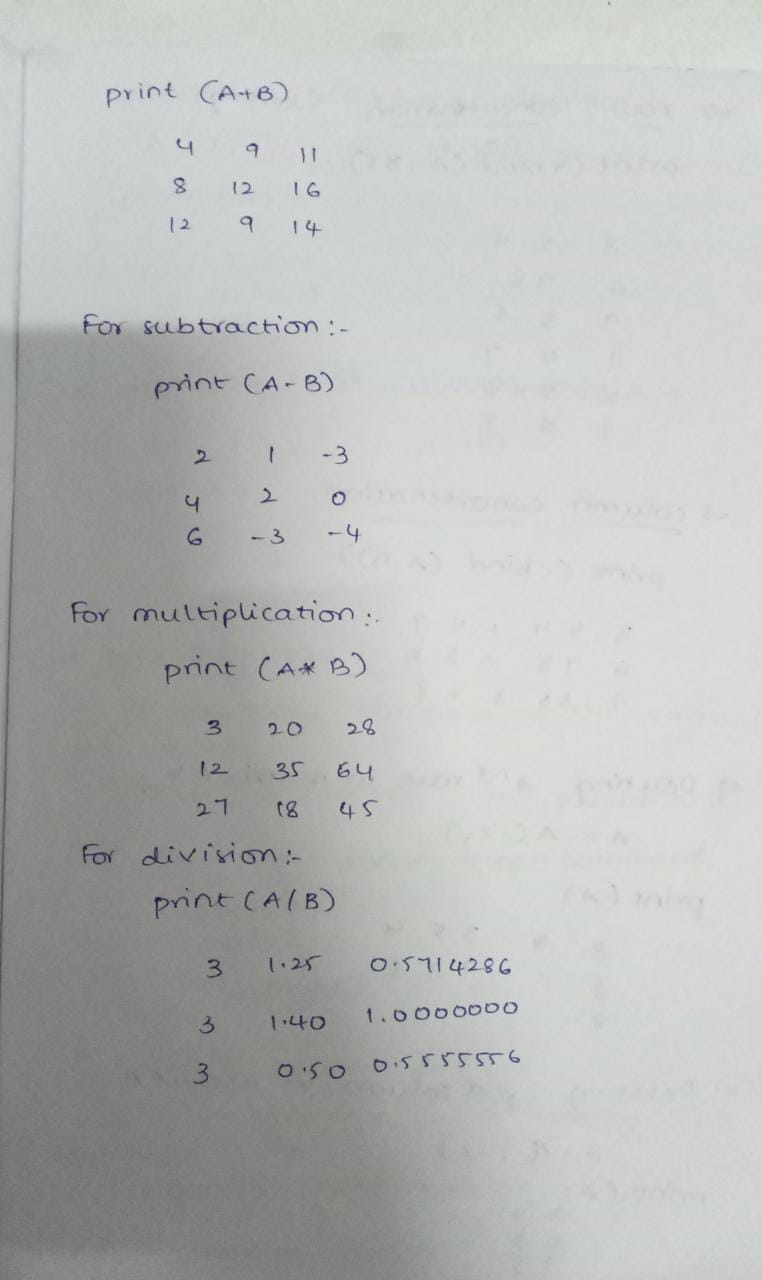 print (A+B)
4 9 11
8 12 16
12 9 14
For subtraction :-
print (A-B)
2 1 -3
4 2 0
6 -3 -4
For multiplication :.
print (A* B)
3 20 28
12 35 64
27 18 45
For division :-
print (A/B)
3 1.25 0.5714286
3 1.40 1.0000000
3 0.50 0.5555556